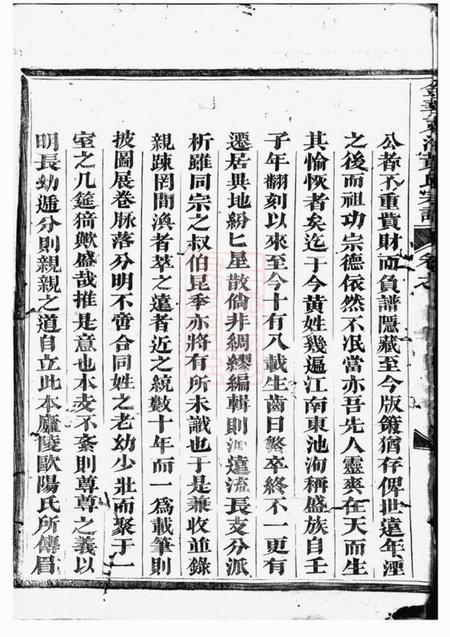 公者不重貲財而負譜隱藏至今版策猶存俾世遠年湮
之後而祖功宗德依然不泯當亦吾先人靈爽在天而生
其愉恢者矣迄于今黃姓幾遍江南東池洵稱盛族自壬
子年翻刻以來至今十有八載生齒日繁卒終不一更有
遷居異地紛匕星散倘非綢繆編輯則源遠流長支分派
析雖同宗之叔伯昆季亦將有所未識也于是兼收並錄
親疎罔間渙者萃之遠者近之統數十年而一為載筆則
披圖展卷脉落分明不啻合同姓之老幼少壯而聚于一
室之几筵猗歟盛哉推是意也本支不紊則尊尊之義以
明長幼遁分則親親之道自立此本廬陵歐陽氏所傳眉